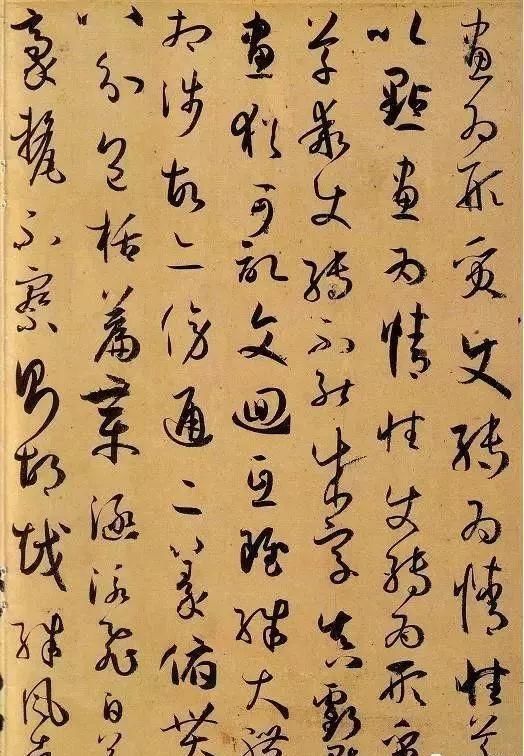 畫為形質使轉為情性草
以點畫為情性使轉為形質
草乖使轉不能成字真虧點
畫猶可記文迴互雖殊大體
相涉故亦傍通二篆俯貫
八分包括篇章涵泳飛白若
豪釐不察則胡越殊風者